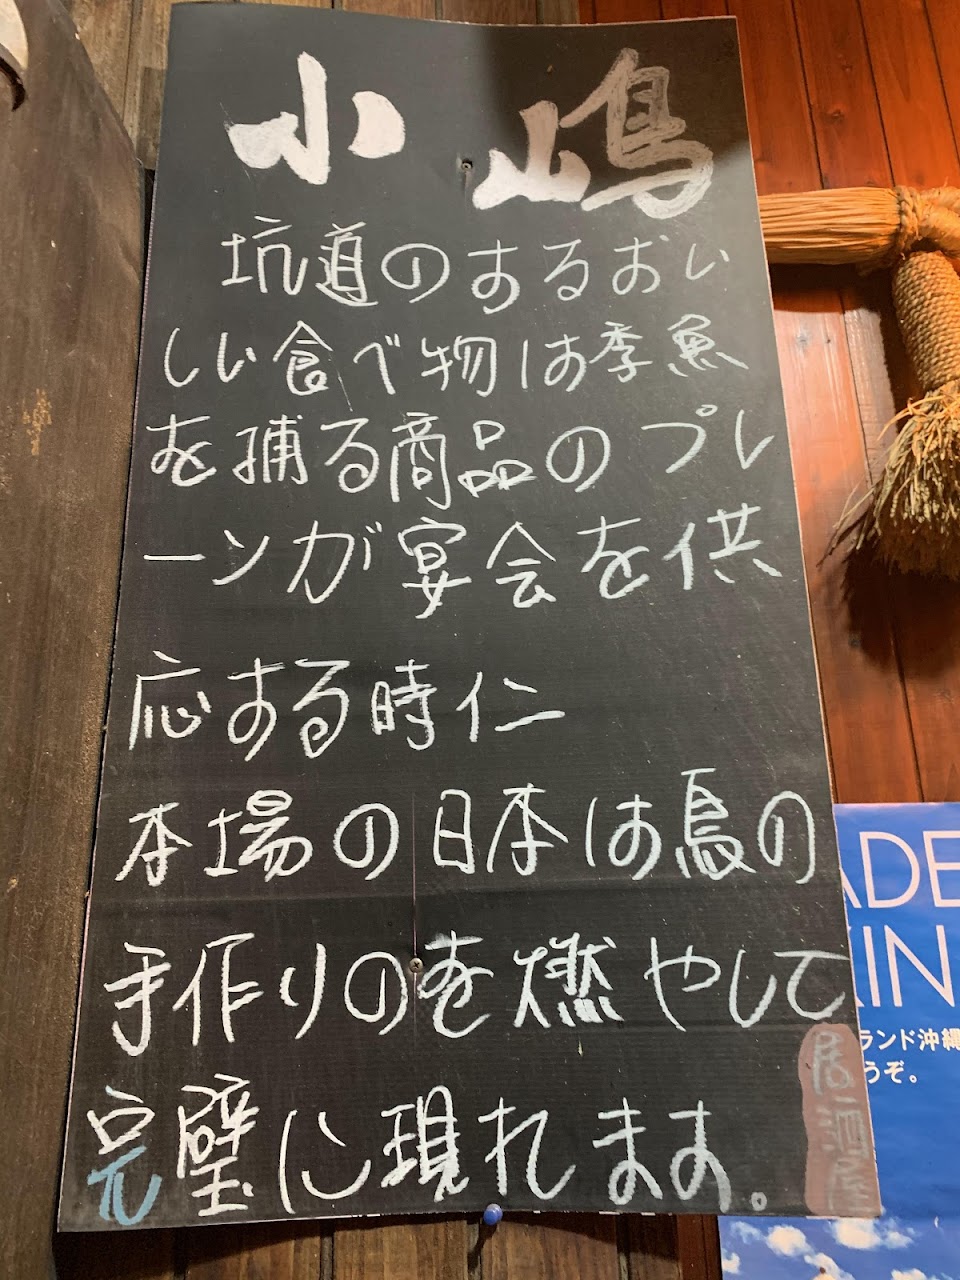 小嶋
坑道のするおい
しい食べ物は季魚
を捕る商品のプレ
ーンが宴会を供
応する時仁
本場の日本は鳥の
手作りのを燃やして
完璧に現れます。
居酒屋
ADE
IN
ランド沖縄
うぞ。